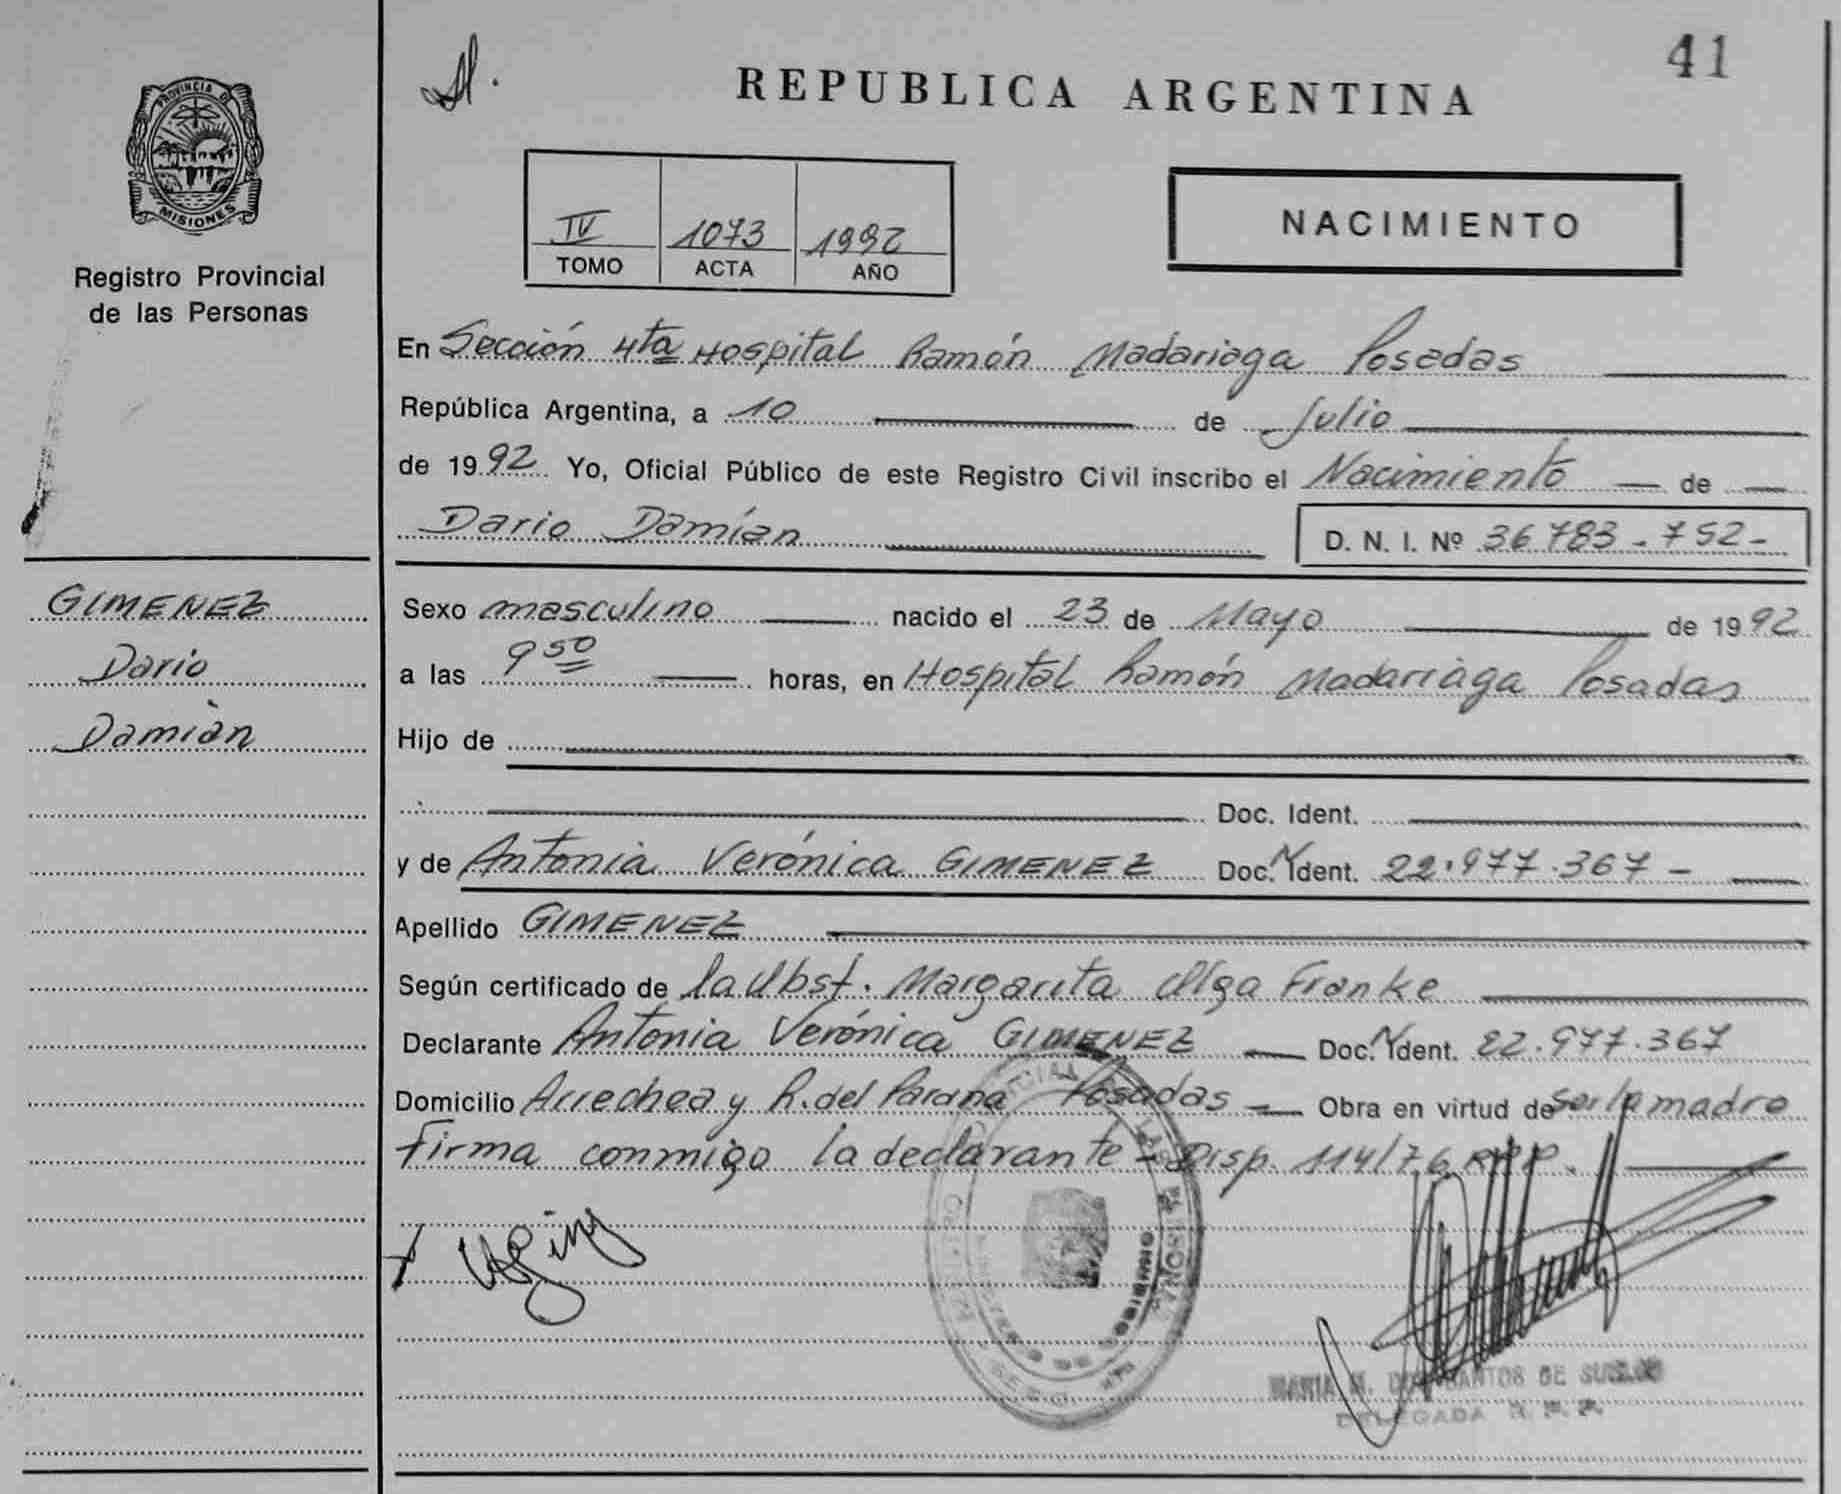 41
REPUBLICA ARGENTINA
PROVINCIA DE
MISIONES
Registro Provincial
de las Personas
IV 1073 1992
TOMO ACTA AÑO
NACIMIENTO
En Sección 4ta Hospital Ramón Madariaga Posadas
República Argentina, a 10 de Julio
de 1992 Yo, Oficial Público de este Registro Civil inscribo el Nacimiento de
Dario Damían D. N. I. Nº 36783-752-
GIMENEZ
Dario
Damián
Sexo masculino nacido el 23 de Mayo de 1992
a las 9 50 horas, en Hospital Ramón Madarriaga Posadas
Hijo de
Doc. Ident.
y de Antonia Verónica GIMENEZ Doc. Ident. 22.977.367-
Apellido GIMENEZ
Según certificado de la Obst. Margarita Olga Franke
Declarante Antonia Verónica GIMENEZ Doc. Ident. 22.977.367
Domicilio Arrechea y R. del Parana Posadas Obra en virtud de ser la madre
Firma conmigo la declarante - Disp. 114/76 RPP.
MARIA M. DOS SANTOS DE
DELEGADA R. P. P.